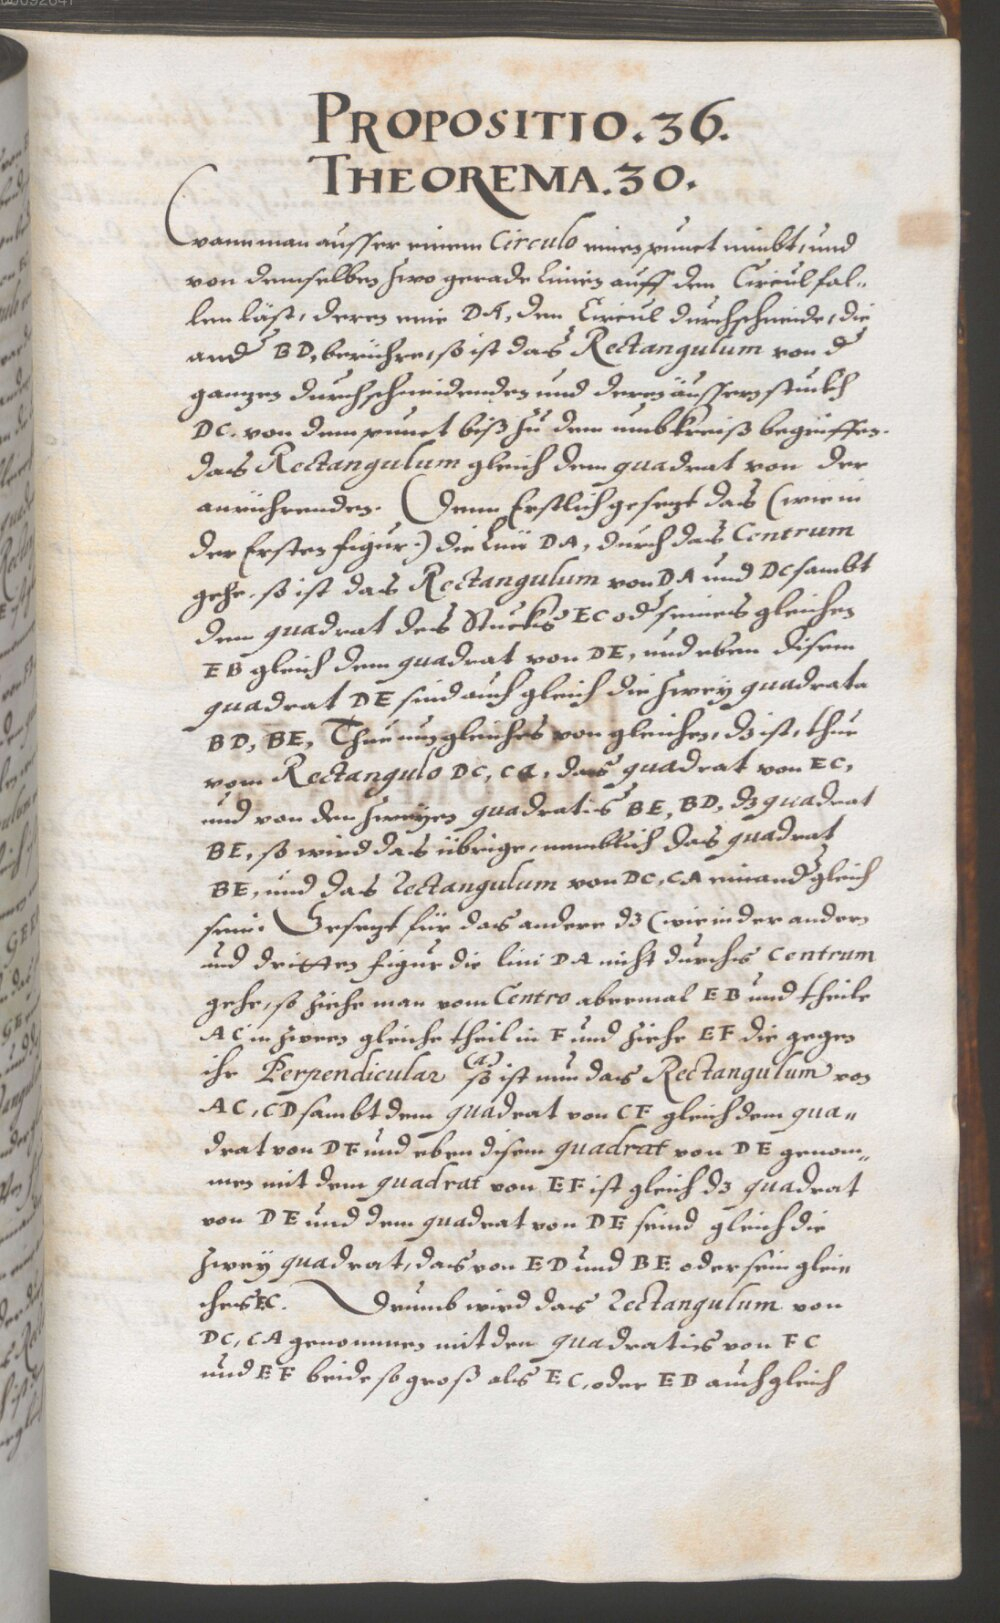 PROPOSITIO. 36.
THEOREMA. 30.
Wann man ausser einem Circulo einen punct nimbt, und
von demselben zwo gerade Linien auff den Circul fal„
len läst, deren eine DA, den Circul durchschneide, die
and BD, berühre, so ist das Rectangulum von d
ganzen durchschneidenden und deren äussern stuckh
DC. von dem punct biß zu dem umbkreiß begriffen.
das Rectangulum gleich dem quadrat von der
anrührenden. Denn Erstlich gesezt das (wie in
der Ersten figur.) die Linie DA, durch das Centrum
gehe. so ist das Rectangulum von DA und DC sambt
dem quadrat des Stucks EC od seines gleichen
EB gleich dem quadrat von DE, und eben disem
quadrat DE sind auch gleich die zwey quadrata
BD, BE, Thue nun gleiches von gleichen, dz ist, thue
vom Rectangulo DC, CA, das quadrat von EC,
und von den zweyen quadratis BE, BD, dz quadrat
BE, so wird das übrige, nemblich das quadrat
BE, und das Rectangulum von DC, CA einand gleich
sein. Gesezt für das andere dz (wie in der andern
und dritten figur die lini DA nicht durchs Centrum
gehe, so ziehe man vom Centro abermal EB und theile
AC in zween gleiche theil in F und ziehe EF die gegen
ihr Perpendicular (a) so ist nun das Rectangulum von
AC, CD sambt dem quadrat von CF gleich dem qua„
drat von DF und eben disem quadrat von DE genom„
men mit dem quadrat von EF ist gleich dz quadrat
von DE und dem quadrat von DE seind gleich die
zwey quadrat, das von ED und BE oder sein glei
ches EC. Drumb wird das Rectangulum von
DC, CA genommen mit den quadratis von FC
und EF beide so groß als EC, oder EB auch gleich